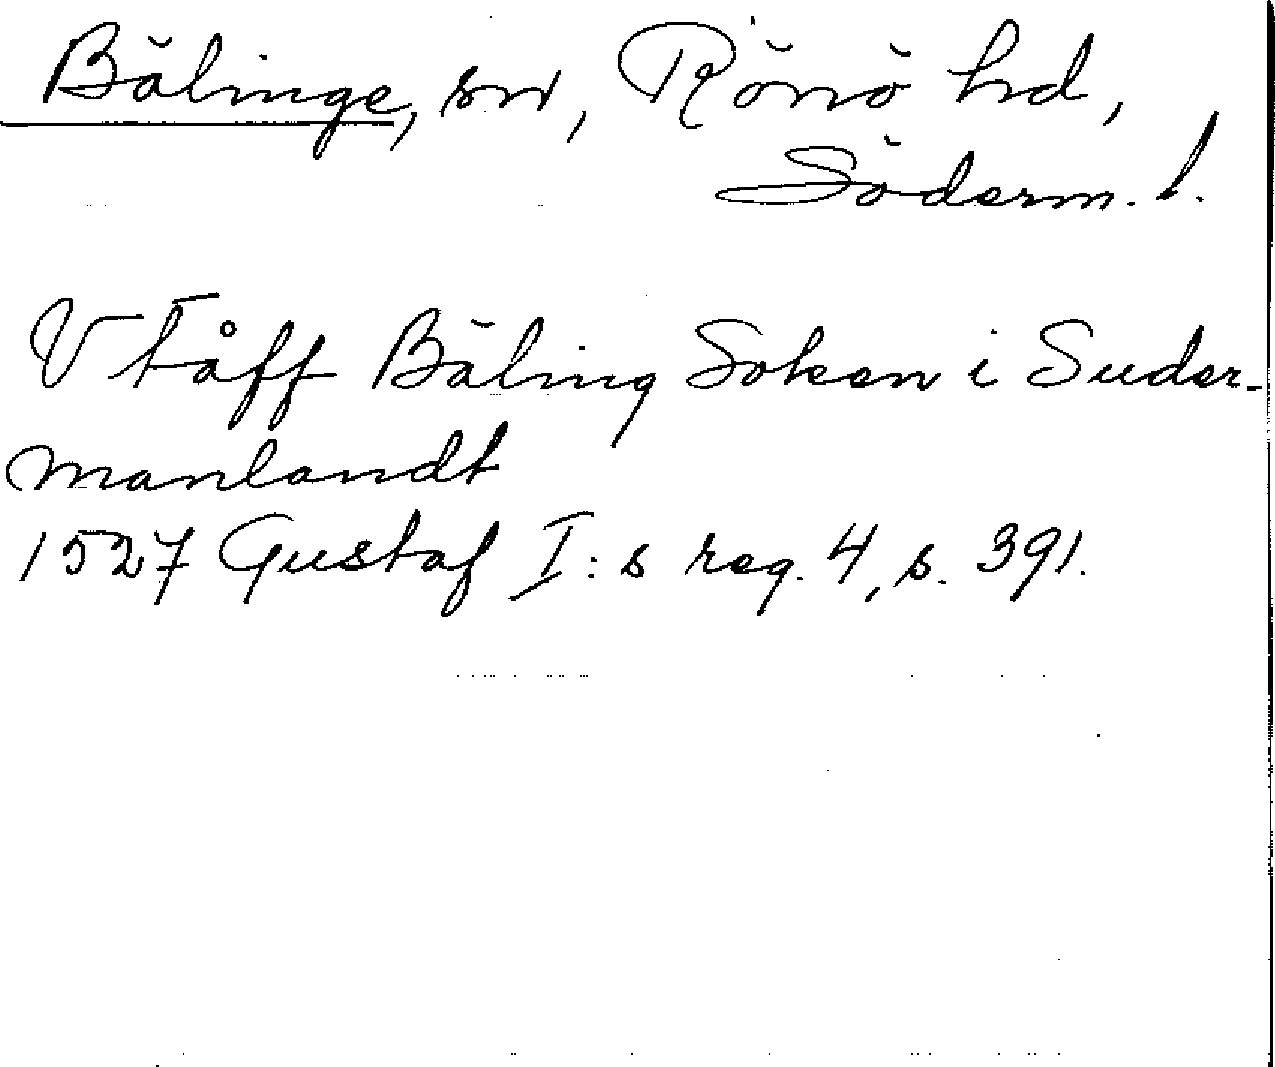 Bälinge, sn, Rönö hd,
Söderm. l.
Vtåff Bäling Soken i Suder-
manlandt
1527 Gustaf I:s reg. 4, s. 391.